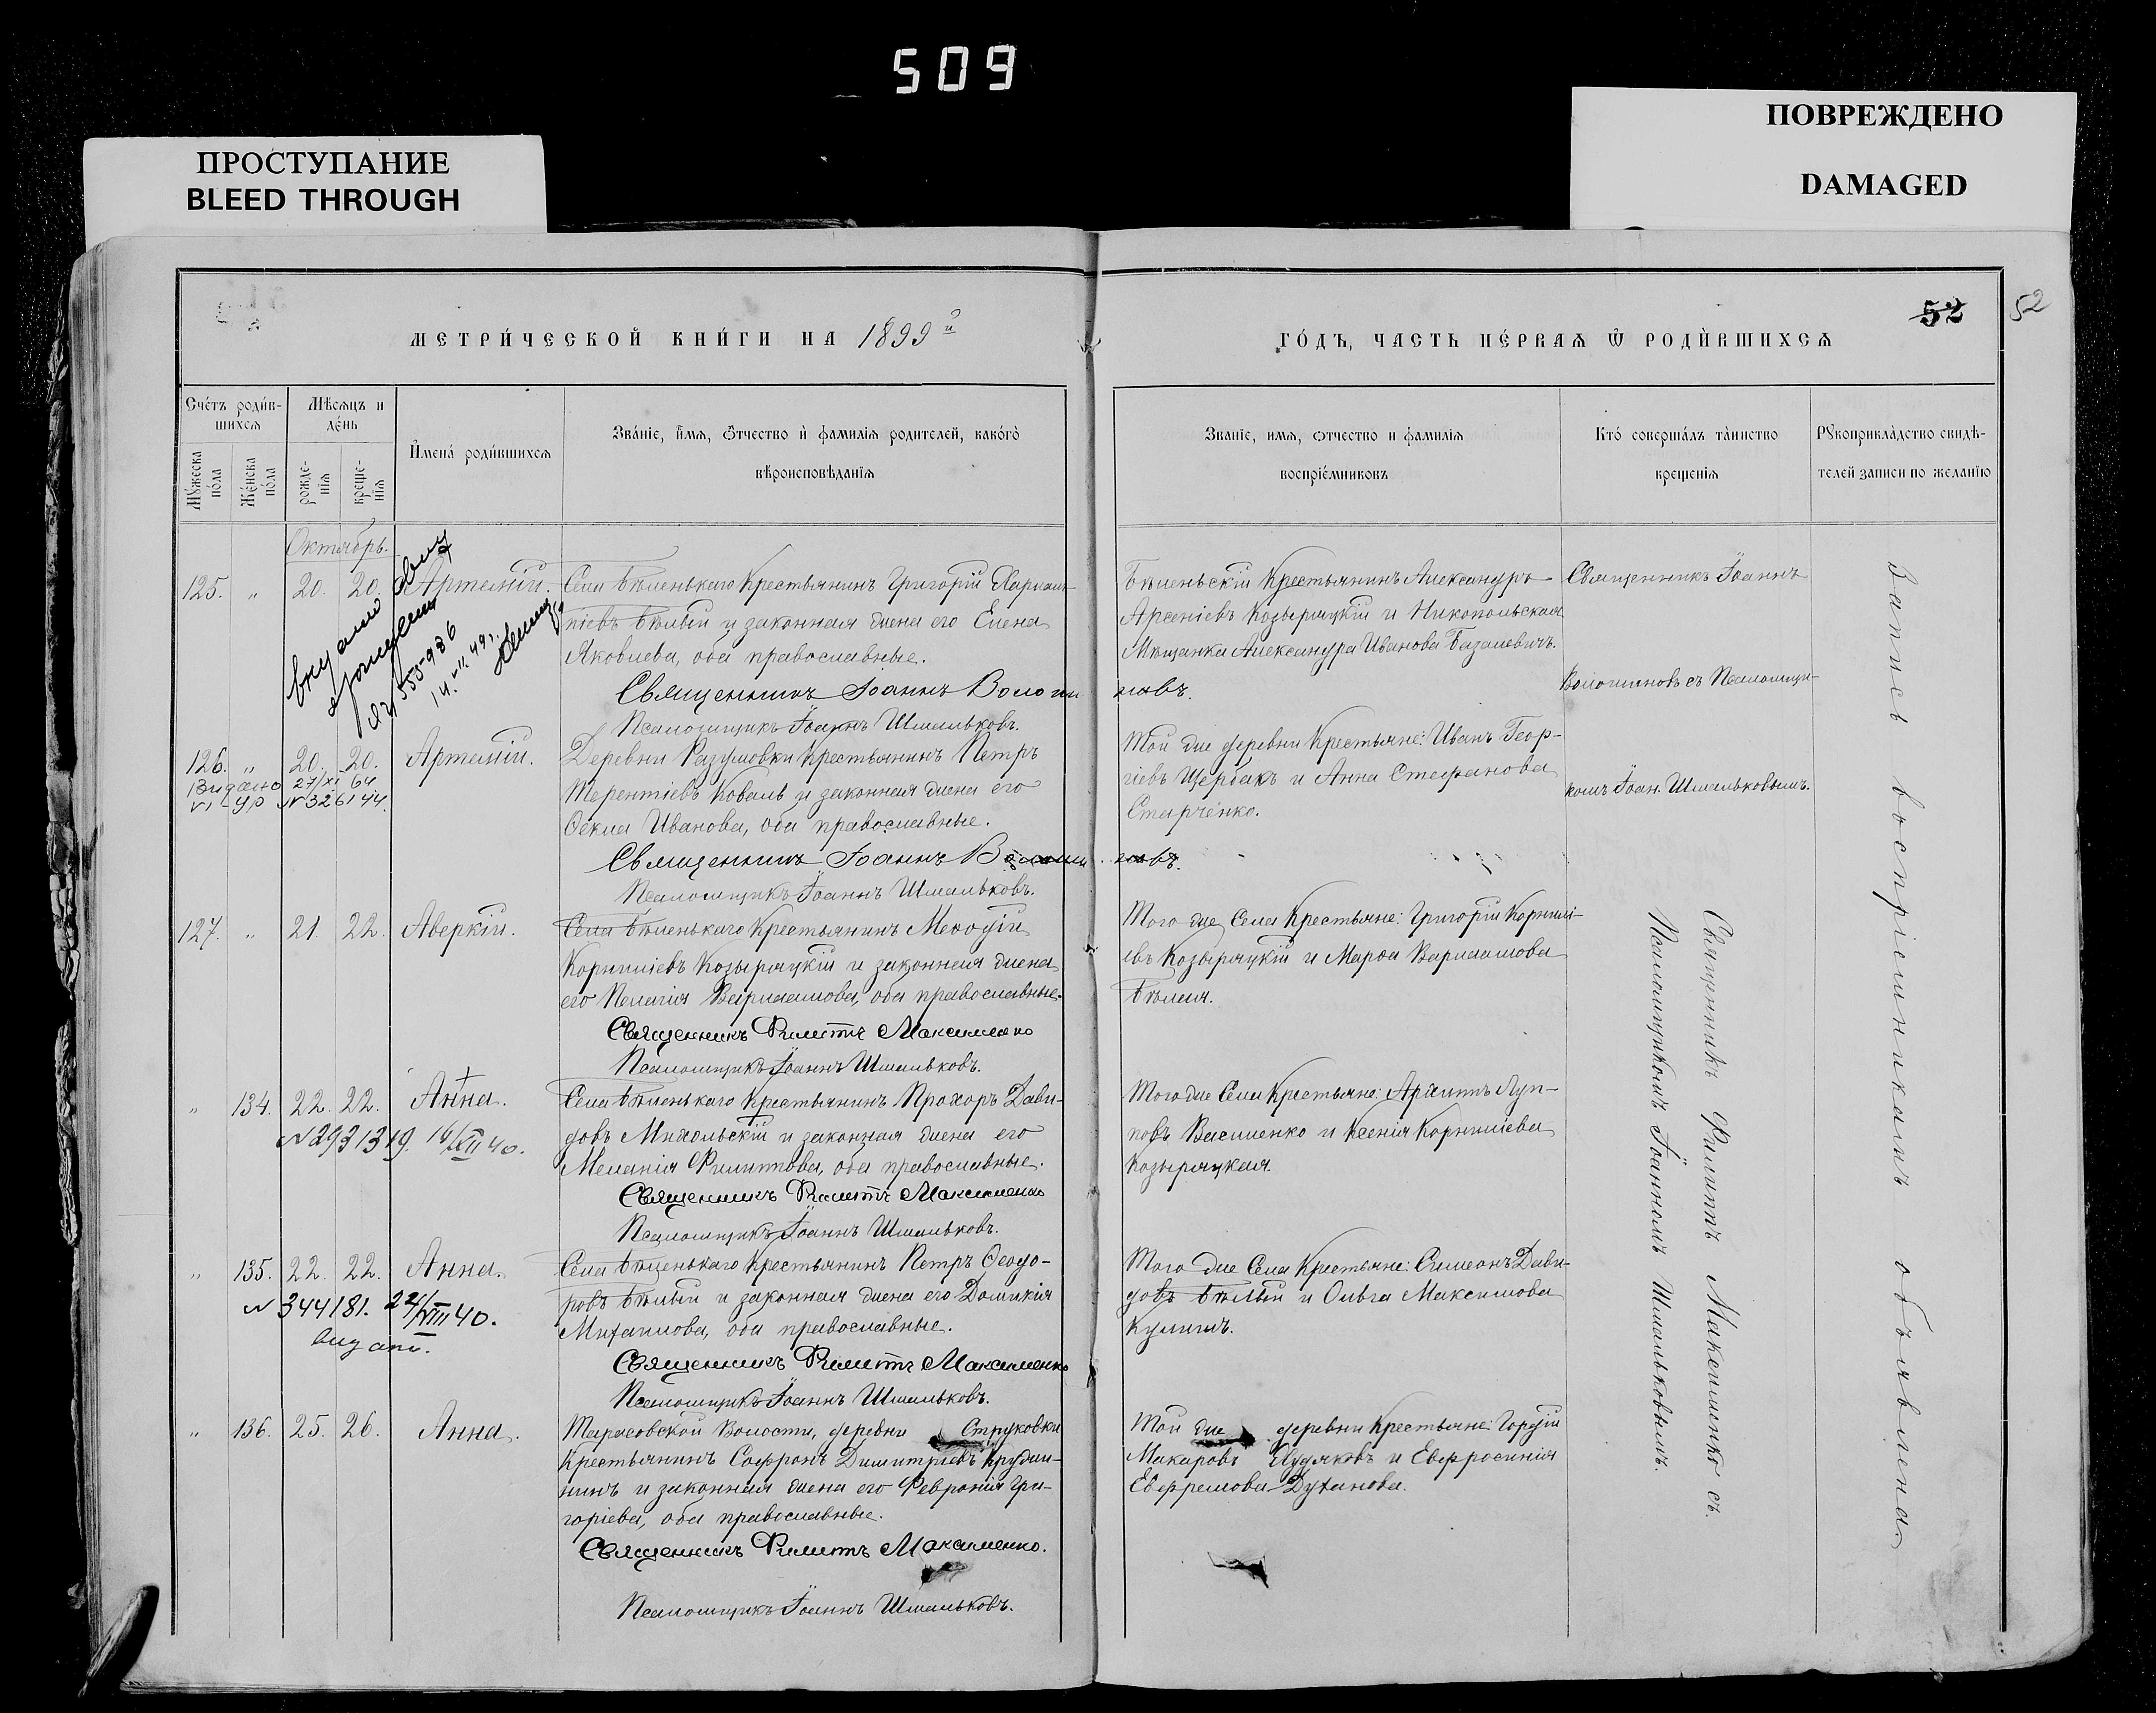 509
ПРОСТУПАНИЕ
BLEED THROUGH
ПОВРЕЖДЕНО
DAMAGED
52
52
МЕТРИ́ЧЕСКОЙ КНИ́ГИ НА 1899й
ГО́ДЪ, ЧАСТЬ ПЕ́РВАѦ Ѿ РОДИ́ВШИХСѦ
Сче́тъ роди́в-
шихсѧ
Мꙋ́жеска по́ла
Же́нска по́ла
Мѣ́сѧцъ и
де́нь
рожде-
нїѧ
креще-
нїѧ
И҆мена̀ роди́вшихсѧ
Зва́нїе, и҆́мѧ, ѻ҆́тчество и҆ фамилїѧ родителей, како́гѡ
вѣроисповѣданїѧ
Званїе, имѧ, ѻтчество и фамилїѧ
воспрїе́мниковъ
Кто̀ соверша́лъ та́инство
крещенїѧ
Рꙋкоприкла́дство свидѣ-
телей записи по желанїю
Октябрь.
125. " 20. 20. Артемій.
Села Бѣленькаго Крестьянинъ Григорій Харлам-
піевъ Бѣлый и законная жена его Елена
Яковлева, оба православные.
Священникъ Іоаннъ Волошиновъ.
Псаломщикъ Іоаннъ Шмальковъ.
Бѣленьскій Крестьянинъ Александръ
Арсеніевъ Козыряцкій и Никопольская
Мѣщанка Александра Иванова Базалевичъ.
Священникъ Іоаннъ
Волошиновъ съ Псаломщи-
комъ Іоан. Шмальковымъ.
ЯУ 555-986
126. " 20. 20. Артемій.
Видано 27/XI 64
VI-УР № 326144.
Деревни Разумовки Крестьянинъ Петръ
Терентіевъ Коваль и законная жена его
Ѳекла Иванова, оба православные.
Священникъ Іоаннъ Волошиновъ.
Псаломщикъ Іоаннъ Шмальковъ.
Той же деревни Крестьяне: Иванъ Геор-
гіевъ Щербакъ и Анна Стефанова
Старченко.
127. " 21. 22. Аверкій.
Села Бѣленькаго Крестьянинъ Меѳодій
Корниліевъ Козыряцкій и законная жена
его Пелагія Варлаамова, оба православные.
Священникъ Филиппъ Максименко
Псаломщикъ Іоаннъ Шмальковъ.
Того же Села Крестьяне: Григорій Корнилі-
евъ Козыряцкій и Марѳа Варлаамова
Бѣлая.
" 134. 22. 22. Анна.
№ 2931319. 16/XII 40.
Села Бѣленькаго Крестьянинъ Прохоръ Дави-
довъ Михольскій и законная жена его
Меланія Филиппова, оба православные.
Священникъ Филиппъ Максименко
Псаломщикъ Іоаннъ Шмальковъ.
Того же Села Крестьяне: Архиппъ Луп-
повъ Василенко и Ксенія Корниліева
Козыряцкая.
" 135. 22. 22. Анна.
№ 344181. 22/VIII 40.
видано.
Села Бѣленькаго Крестьянинъ Петръ Ѳеодо-
ровъ Бѣлый и законная жена его Домникія
Михаилова, оба православные.
Священникъ Филиппъ Максименко
Псаломщикъ Іоаннъ Шмальковъ.
Того же Села Крестьяне: Симеонъ Дави-
довъ Бѣлый и Ольга Максимова
Кулишъ.
" 136. 25. 26. Анна.
Тарасовской Волости, деревни Струковки
Крестьянинъ Софронъ Димитріевъ
и законная жена его Февронія Гри-
горіева, оба православные.
Священникъ Филиппъ Максименко.
Псаломщикъ Іоаннъ Шмальковъ.
Той же деревни Крестьяне: Гордій
Макаровъ Худяковъ и Евфросинія
Евфремова Духанова.
Священникъ Филиппъ Максименко съ
Псаломщикомъ Іоанномъ Шмальковымъ.
Запись воспріемникамъ объявлена